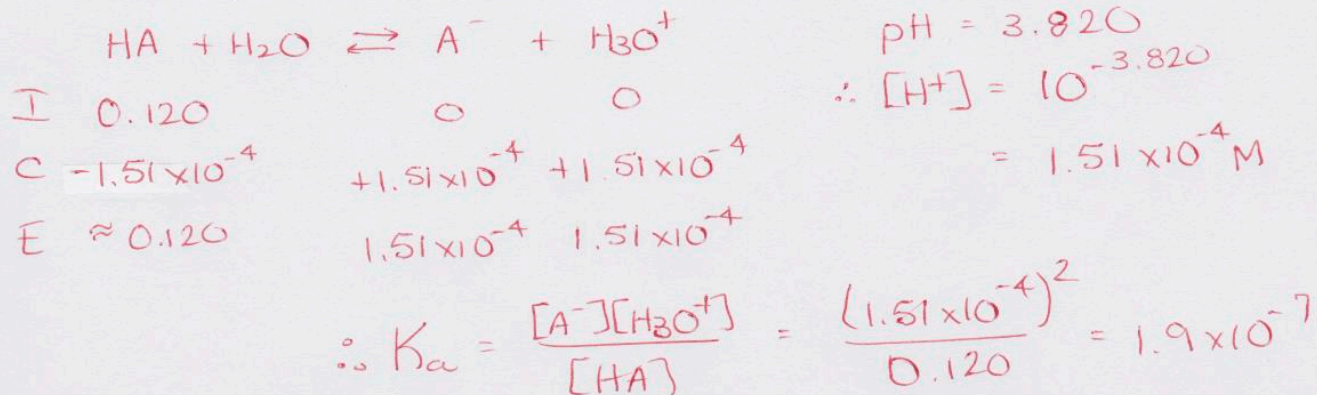 HA + H₂O ⇄ A⁻ + H₃O⁺
I 0.120 0 0
C -1.51×10⁻⁴ +1.51×10⁻⁴ +1.51×10⁻⁴
E ≈0.120 1.51×10⁻⁴ 1.51×10⁻⁴
pH = 3.820
∴ [H+] = 10⁻³·⁸²⁰
= 1.51×10⁻⁴ M
∴ Ka = [A⁻][H₃O⁺] / [HA] = (1.51×10⁻⁴)² / 0.120 = 1.9×10⁻⁷